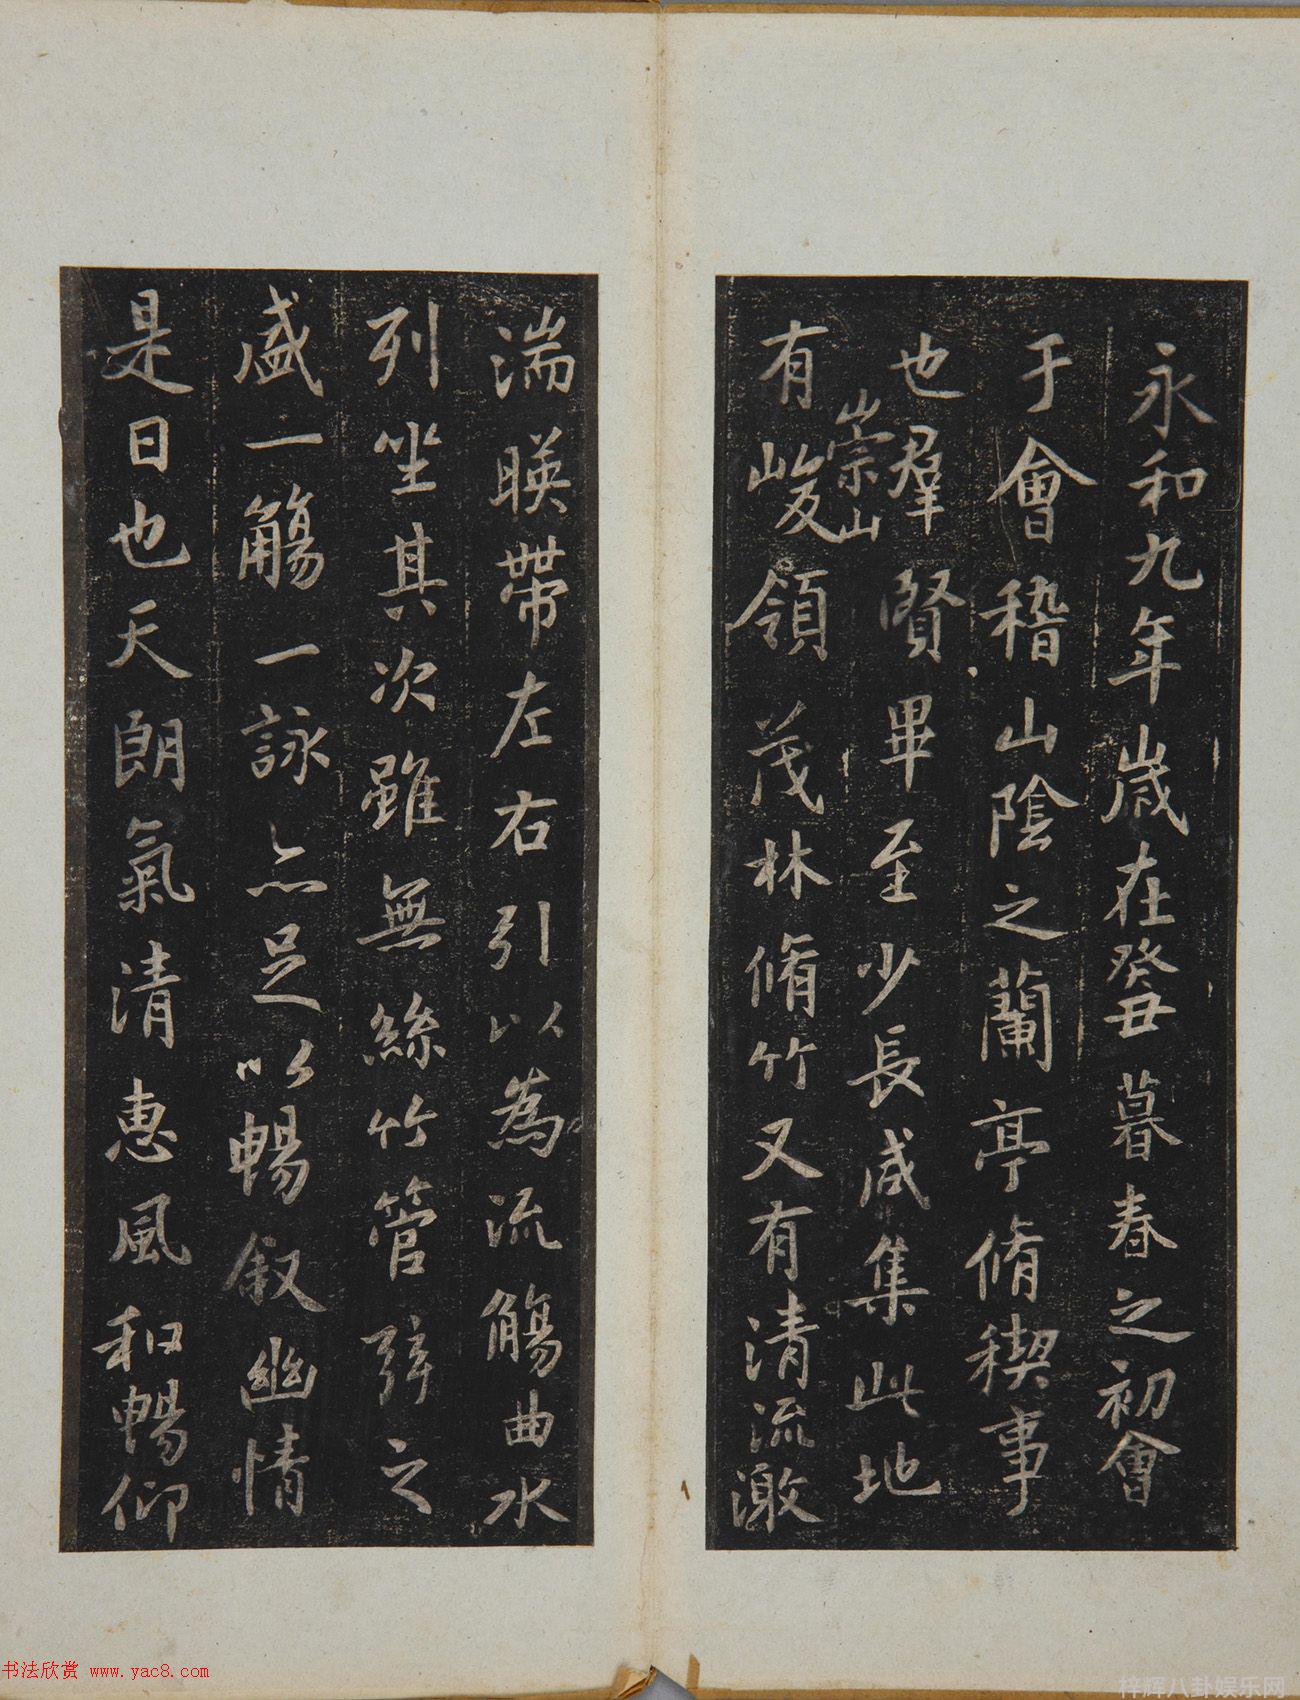 永和九年歲在癸丑暮春之初會
于會稽山陰之蘭亭脩稧事
也羣賢畢至少長咸集此地
崇山
有峻領茂林脩竹又有清流激
湍暎帶左右引以為流觴曲水
列坐其次雖無絲竹管弦之
盛一觴一詠亦足以暢叙幽情
是日也天朗氣清惠風和暢仰
书法欣赏 www.yac8.com
梓辉八卦娱乐网